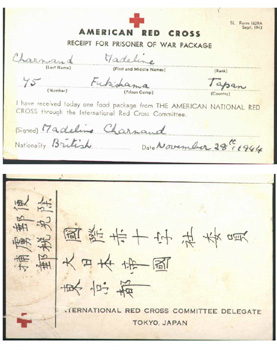 St. Form 1628A
Sept. 1943
AMERICAN RED CROSS
RECEIPT FOR PRISONER OF WAR PACKAGE
Charnaud Madeline
(Last Name) (First and Middle Names) (Rank)
45 Fukushama Japan
(Number) (Prison Camp) (Country)
I have received today one food package from THE AMERICAN NATIONAL RED
CROSS through the International Red Cross Committee.
(Signed) Madeline Charnaud
Nationality British Date November 28th, 1944
俘虜郵便
郵税免除
國際赤十字社委員
大日本帝國
東京都
INTERNATIONAL RED CROSS COMMITTEE DELEGATE
TOKYO, JAPAN